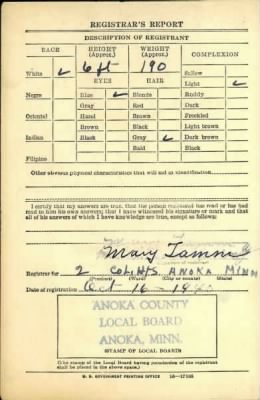 REGISTRAR'S REPORT
DESCRIPTION OF REGISTRANT
RACE HEIGHT (Approx.) WEIGHT (Approx.) COMPLEXION
6 ft 190 Sallow
White ✓ EYES HAIR Light ✓
Negro Blue ✓ Blonde Ruddy
Gray Red Dark
Oriental Hazel Brown Freckled
Brown Black Light brown
Indian Black Gray ✓ Dark brown
Bald Black
Filipino
Other obvious physical characteristics that will aid in identification
I certify that my answers are true; that the person registered has read or has had
read to him his own answers; that I have witnessed his signature or mark and that
all of his answers of which I have knowledge are true, except as follows:
Mary Tamm
Registrar for 2 COL. HTS. ANOKA MINN
(Precinct) (Ward) (City or county) (State)
Date of registration Oct 16 - 1940
ANOKA COUNTY
LOCAL BOARD
ANOKA, MINN.
STAMP OF LOCAL BOARD
(The stamp of the Local Board having jurisdiction of the registrant
shall be placed in the above space.)
U. S. GOVERNMENT PRINTING OFFICE 16—17105